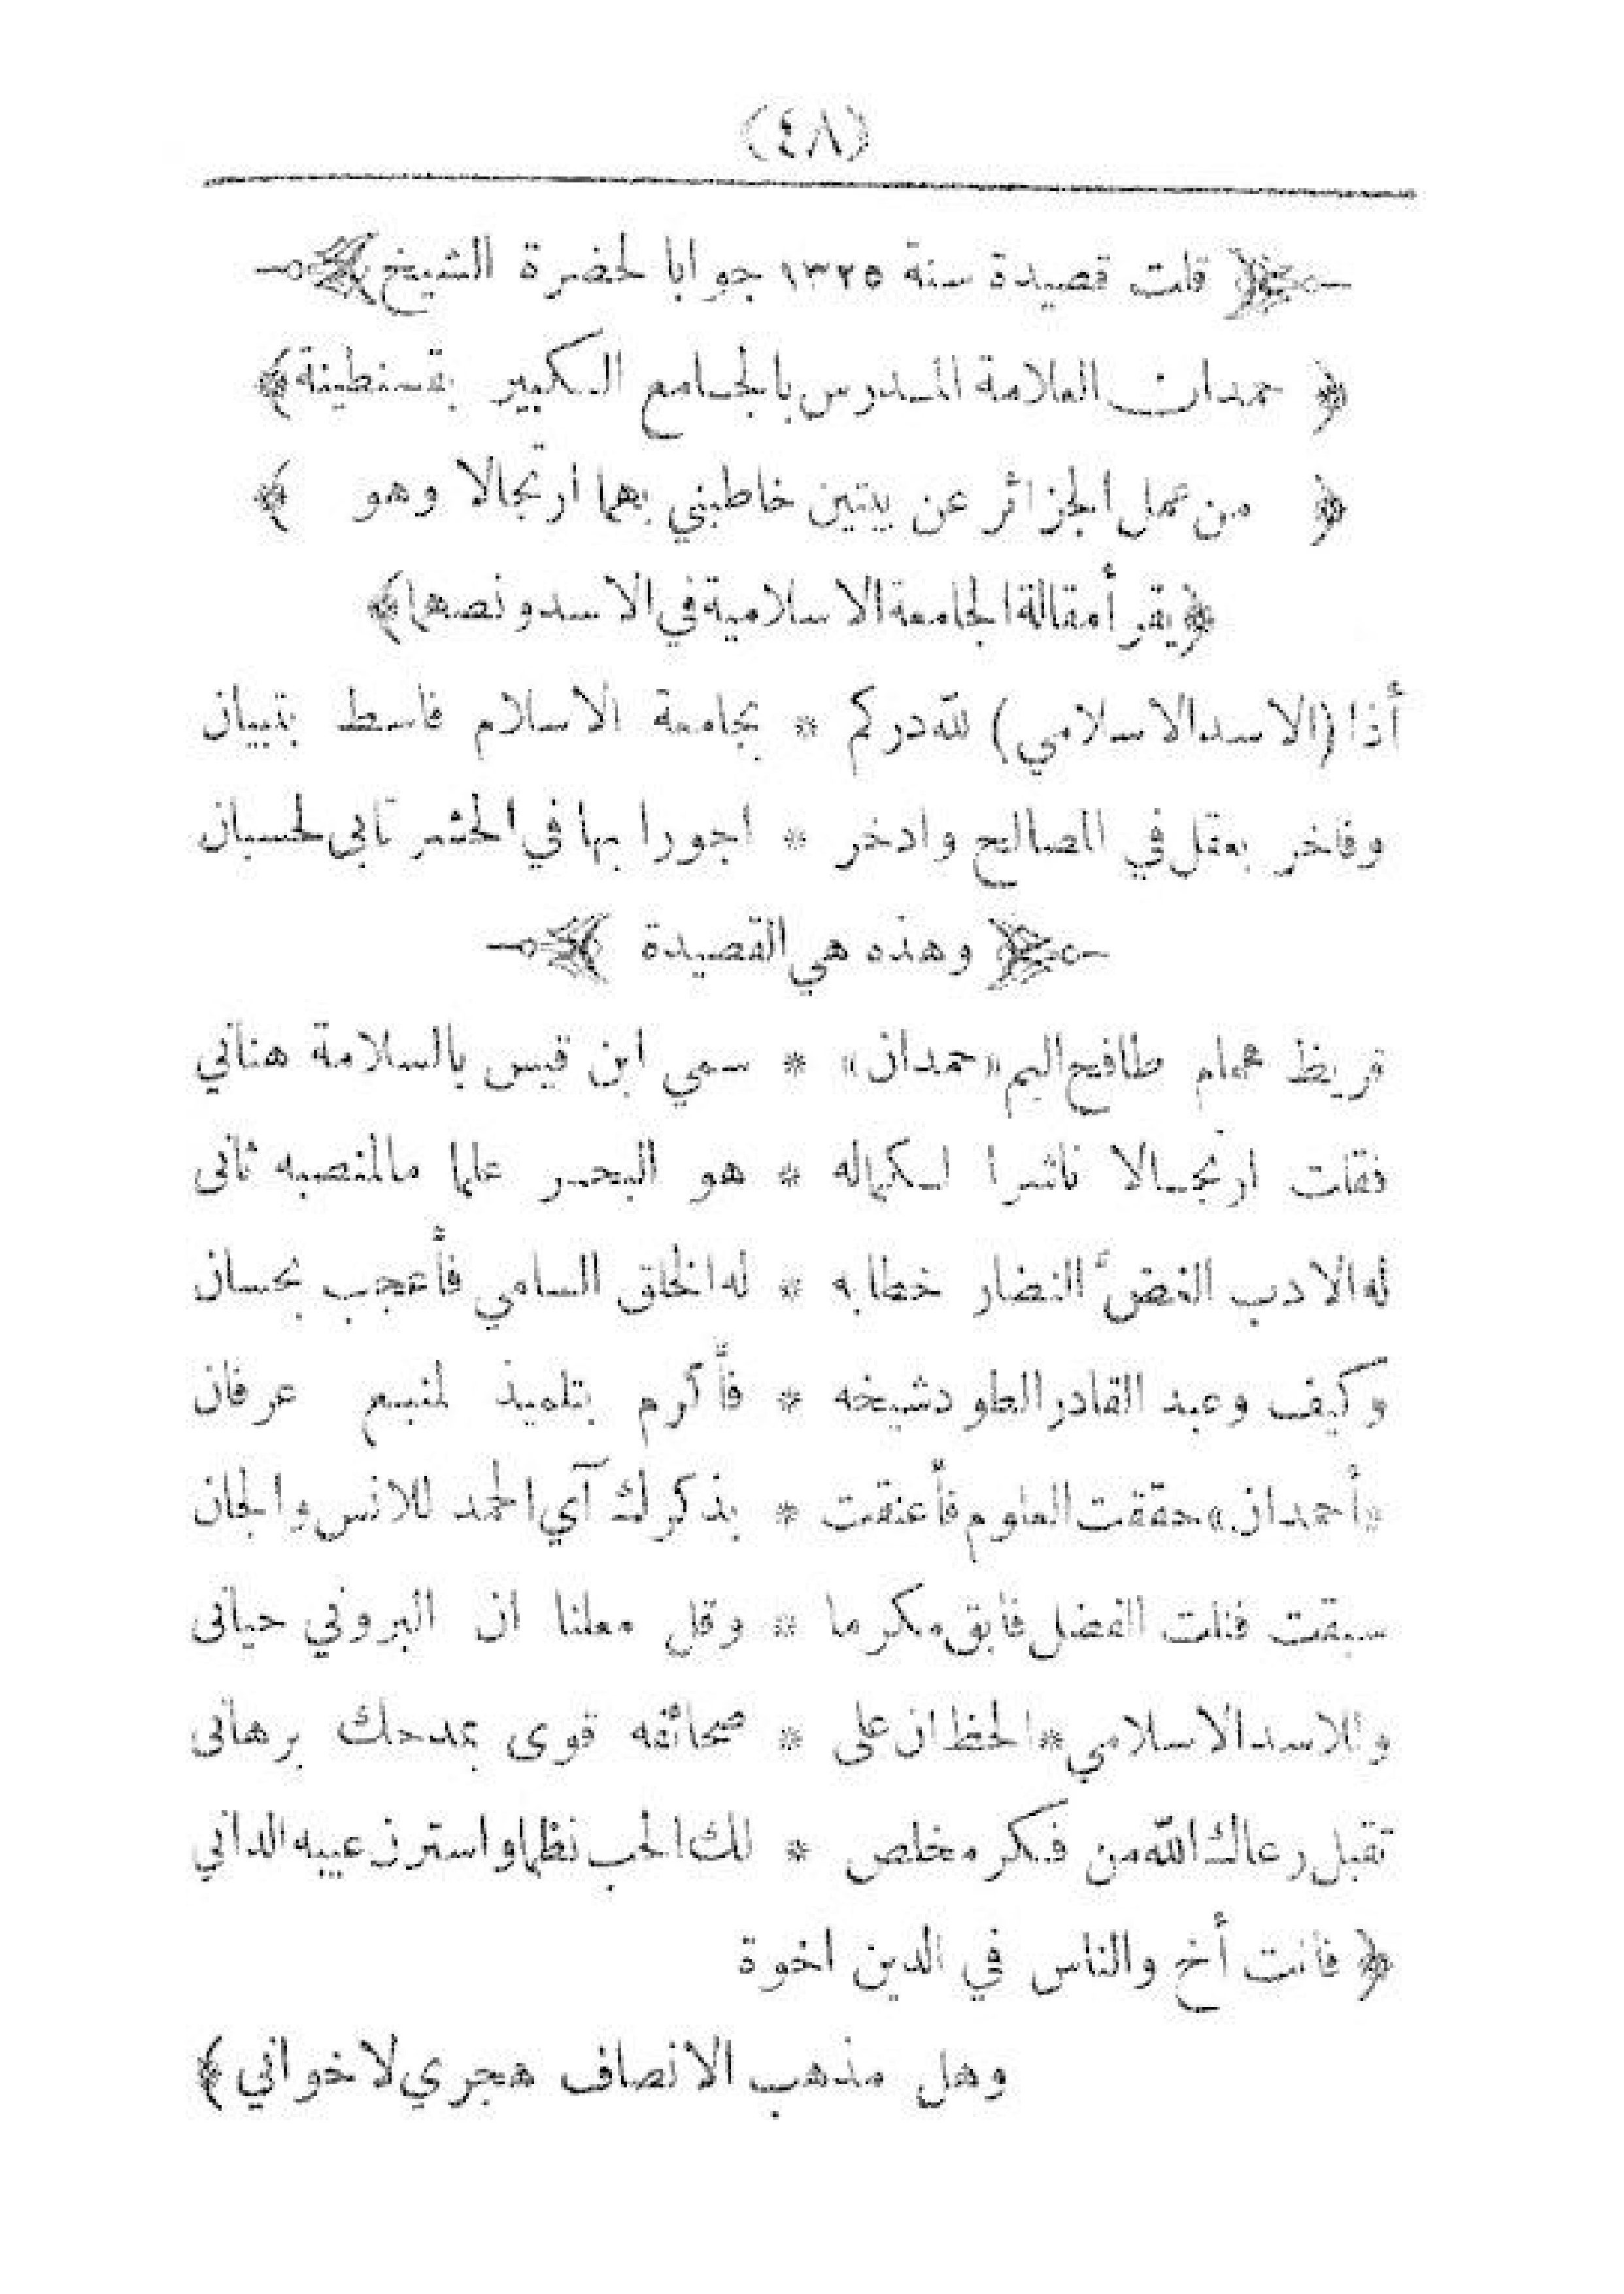 (٤٨)
قلت قصيدة سنة ١٣٢٥ جوابا لحضرة الشيخ
﴿ حمدان العلامة المدرس بالجامع الكبير بقسنطينة ﴾
﴿ من عمل الجزائر عن بيتين خاطبني بهما ارتجالا وهو ﴾
﴿ يقرأ مقالة الجامعة الاسلامية في الاسد ونصهما ﴾
أذا (الاسد الاسلامي) لله دركم * بجامعة الاسلام فاسط بتبيان
وفاخر بعقل في الصالح وادخر * اجورا بها في الحشر تابى لحسبان
وهذه هي القصيدة
قريظ همام طافح اليم «حمدان» * سمي ابن قيس بالسلامة هناني
فقلت ارتجالا ناشرا لكماله * هو البحر علما مالمنصبه ثانى
له الادب الغض النضار خطابه * له الخلق السامي فأعجب بحسان
وكيف وعبد القادر الطود شيخه * فأكرم بتلميذ لمنبع عرفان
«أحمدان» حققت العلوم فأعنقت * بذكرك آي الحمد للانس والجان
سبقت فنلت الفضل فابق مكرما * وقل معلنا ان البروني حيانى
وللاسد الاسلامي * الحظ ان على * صحائفه قوى بمدحك برهانى
تقبل رعاك الله من فكر مخلص * لك الحب نظما واسترن عيبه الداني
﴿ فانت أخ والناس في الدين اخوة
وهل مذهب الانصاف هجري لاخواني ﴾